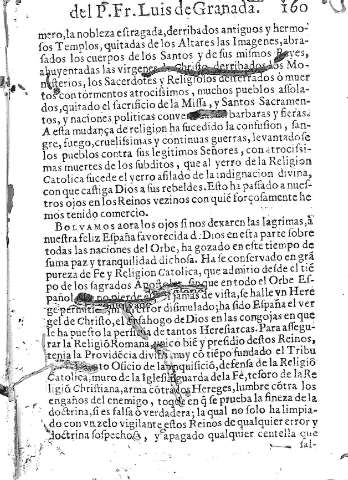 del P. Fr. Luis de Granada. 160
mero, la nobleza estragada, derribados antiguos y hermo-
sos Templos, quitadas de los Altares las Imagenes, abra-
sados los cuerpos de los Santos y de sus mismos Reyes,
ahuyentadas las virgenes Christo, derribados los Mo-
nasterios, los Sacerdotes y Religiosos desterrados ò muer
tos con tormentos atrocissimos, muchos pueblos assola-
dos, quitado el sacrificio de la Missa, y Santos Sacramen-
tos, y naciones politicas barbaras y fieras.
A esta mudança de religion ha sucedido la confusion, san-
gre, fuego, cruelissimas y continuas guerras, levantado se
los pueblos contra sus legitimos Señores, con atrocissi-
mas muertes de los subditos, que al yerro de la Religion
Catolica sucede el yerro afilado de la indignacion divina,
con que castiga Dios a sus rebeldes. Esto ha passado a nues-
tros ojos en los Reinos vezinos con quië forçosamente he
mos tenido comercio.
BOLVAMOS aora los ojos si nos dexaren las lagrimas, à
nuestra feliz España favorecida d Dios en esta parte sobre
todas las naciones del Orbe, ha gozado en este tiempo de
suma paz y tranquilidad dichosa. Ha se conservado en grã
pureza de Fe y Religion Catolica, que admitio desde el tië
po de los sagrados Apostoles, sin que en todo el Orbe Es-
pañol, no pierde jamas de vista, se halle vn Here
ge permiti error dissimulado; ha sido España el ver
gel de Christo, el desahogo de Dios en las congojas en que
le ha puesto la perfidia de tantos Heresiarcas. Para assegu-
rar la Religiõ Romana, vnico biẽ y presidio destos Reinos,
tenia la Providẽcia divina muy cõ tiẽpo fundado el Tribu
Santo Oficio de la Inquisiciõ, defensa de la Religiõ
Catolica, muro de la Iglesia, guarda de la Fé, tesoro de la Re
ligiõ Christiana, arma cõtra los Hereges, lumbre cõtra los
engaños del enemigo, toque en q̃ se prueba la fineza de la
doctrina, si es falsa ò verdadera; la qual no solo ha limpia-
do con vn zelo vigilante estos Reinos de qualquier error y
doctrina sospechosa, y apagado qualquier centella que
sal-